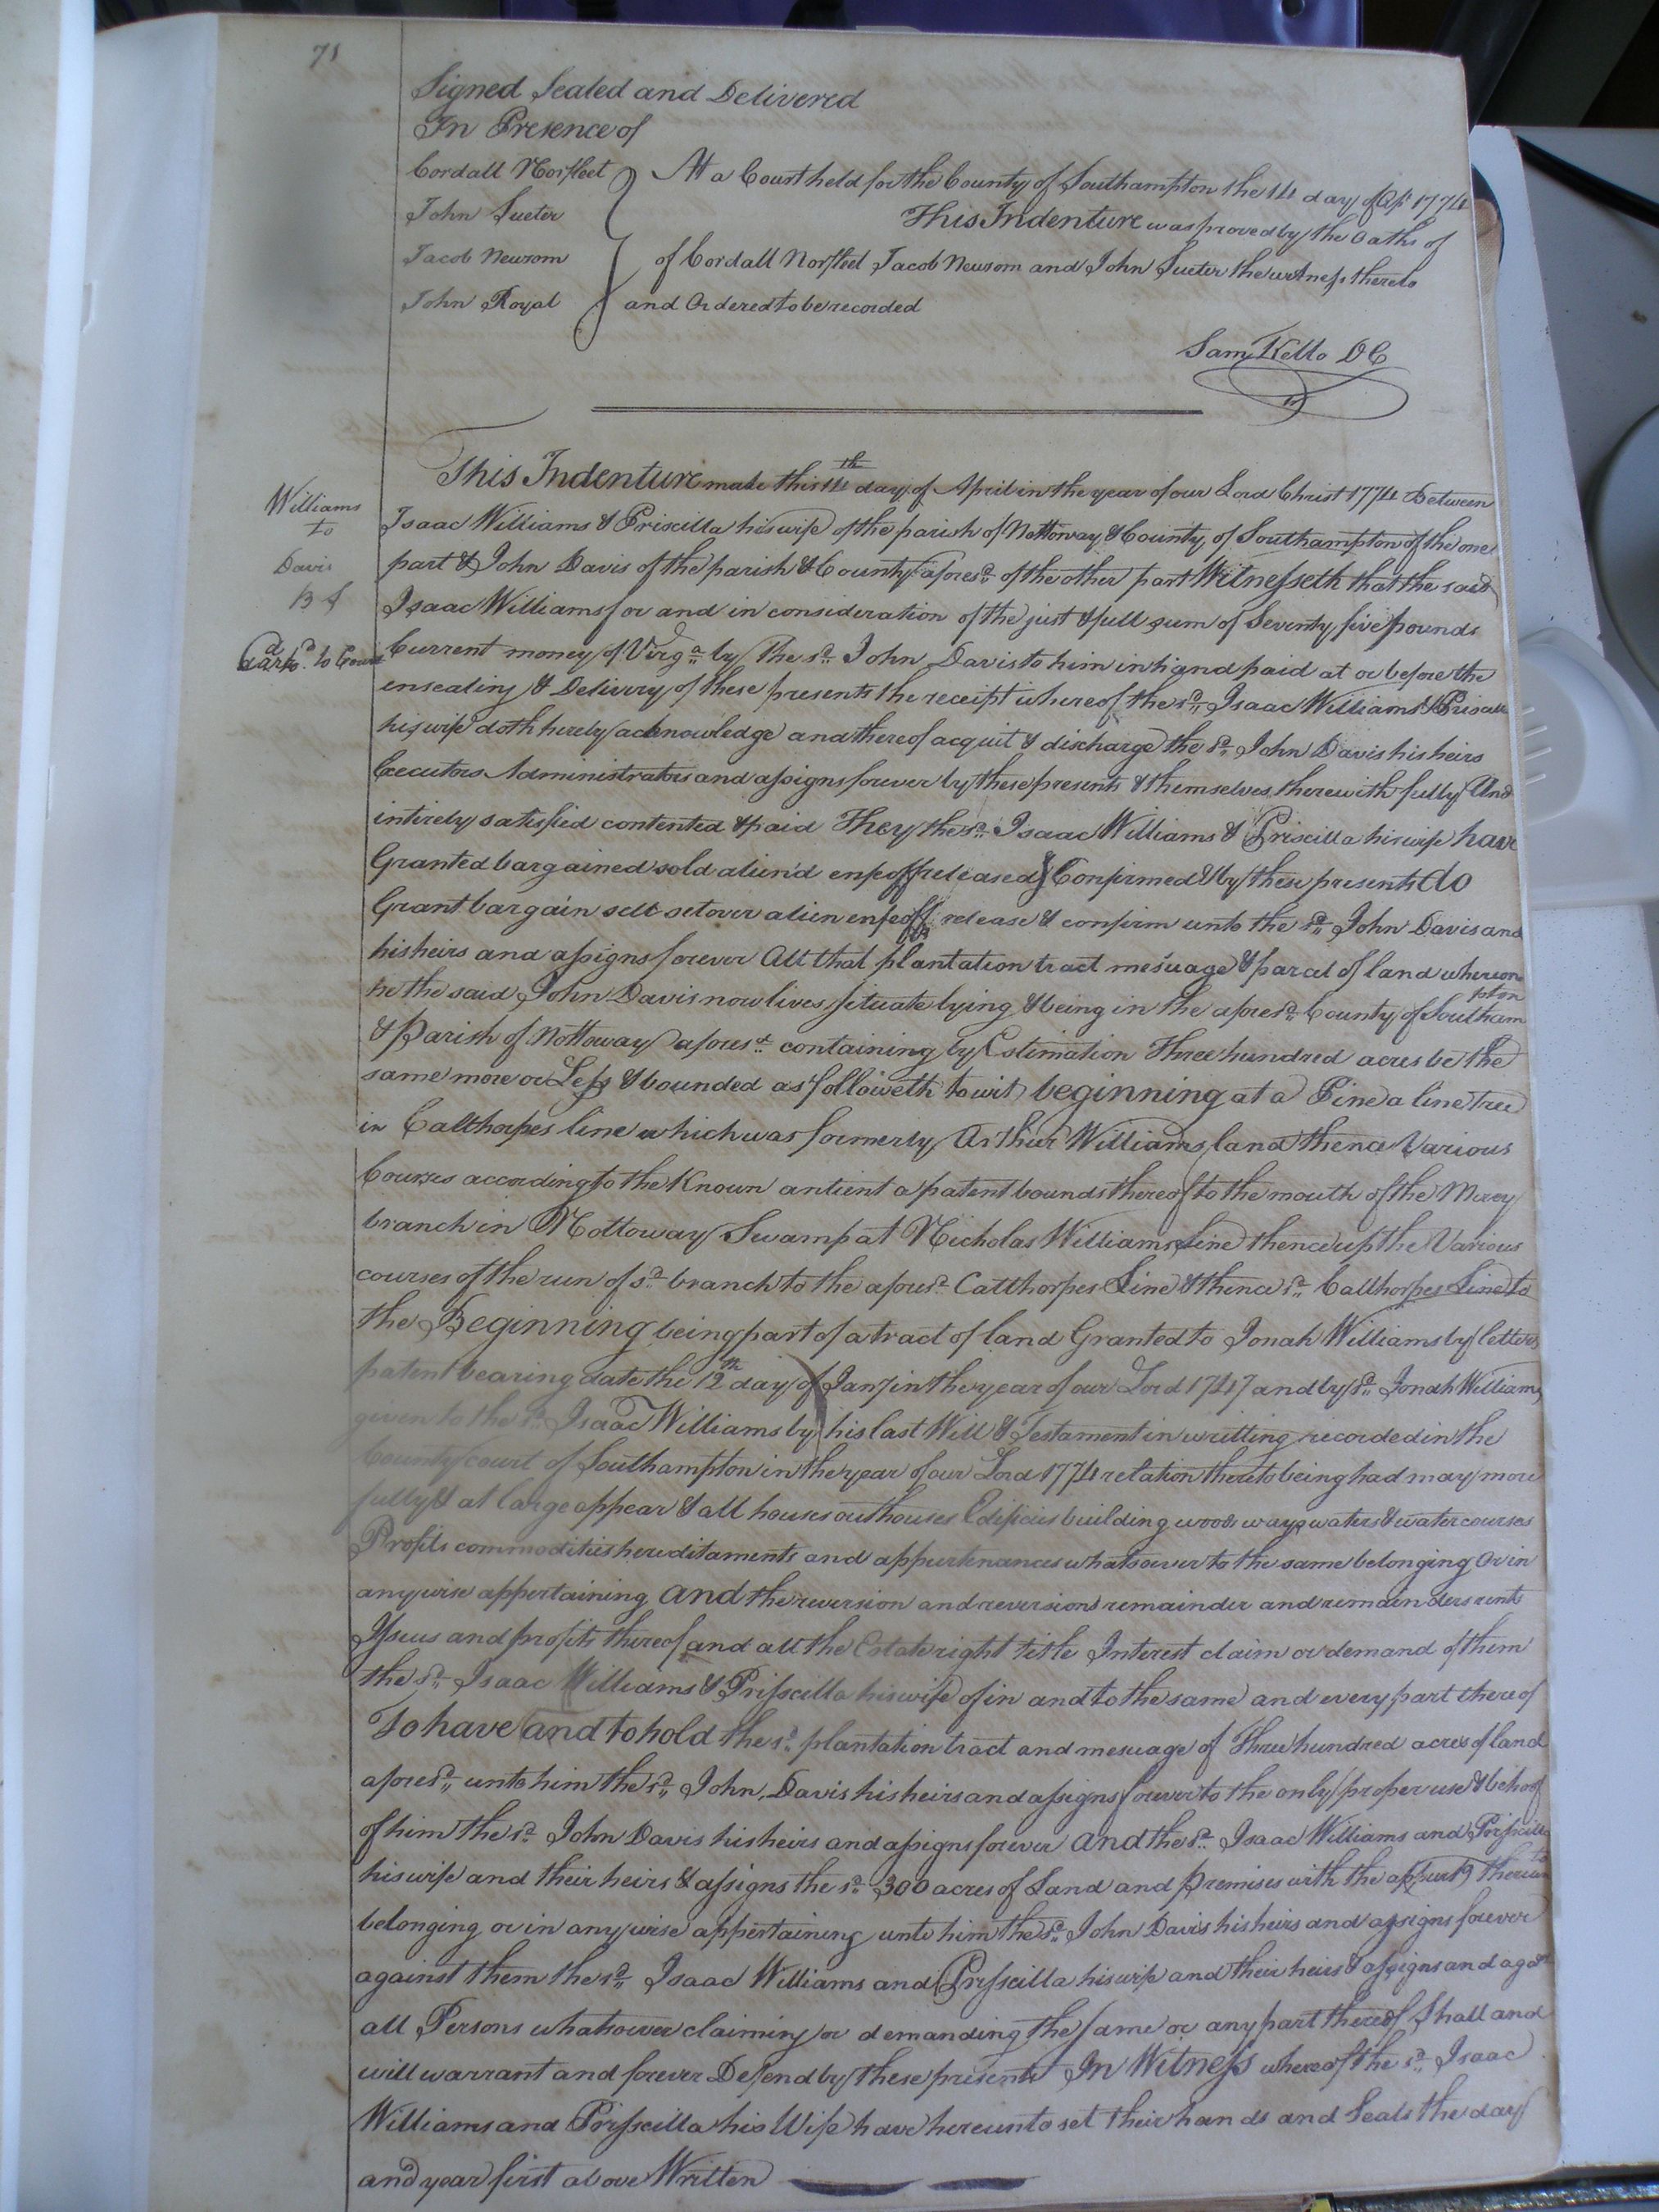 71
Signed Sealed and Delivered
In Presence of
Cordall Norfleet
John Sueter
Jacob Newsom
John Royal
At a Court held for the County of Southampton the 14 day of Apl 1774
This Indenture was proved by the Oaths of
of Cordall Norfleet Jacob Newsom and John Sueter the witness thereto
and Ordered to be recorded
Sam Kello DC
Williams
to
Davis
B &
to
This Indenture made this 14th day of April in the year of our Lord Christ 1774 Between
Isaac Williams & Priscilla his wife of the parish of Nottoway & County of Southampton of the one
part & John Davis of the parish & County aforesd. of the other part Witnesseth that the said
Isaac Williams for and in consideration of the just & full sum of Seventy five pounds
Current money of Virga. by the sd. John Davis to him in hand paid at or before the
ensealing & Delivery of these presents the receipt whereof the sd. Isaac Williams & Prisalla
his wife doth hereby acknowledge and thereof acquit & discharge the sd. John Davis his heirs
Executors Administrators and assigns forever by these presents & themselves therewith fully And
intirely satisfied contented & paid They the sd. Isaac Williams & Priscilla his wife have
Granted bargained sold alien'd enfeoff released & Confirmed & by these presents do
Grant bargain sell set over alien enfeoff release & confirm unto the sd. John Davis and
his heirs and assigns forever All that plantation tract mesuage & parcel of land whereon
he the said John Davis now lives situate lying & being in the aforesd. County of Southampton
& Parish of Nottoway aforesd. containing by Estimation Three hundred acres be the
same more or Less & bounded as followeth towit beginning at a Pine a line Tree
in Calthorpes line which was formerly Arthur Williams land thence Various
Courses according to the Known antient a patent bounds thereof to the mouth of the Mirey
branch in Nottoway Swamp at Nicholas Williams Line thence up the Various
courses of the run of sd. branch to the aforesd. Calthorpes Line & thence sd. Calthorpes Line to
the Beginning being part of a tract of land Granted to Jonah Williams by letters
patent bearing date the 12th day of Jany in the year of our Lord 1747 and by sd. Jonah Williams
given to the sd. Isaac Williams by his last Will & Testament in writting recorded in the
County court of Southampton in the year of our Lord 1774 relation thereto being had may more
fully & at large appear & all houses outhouses Edificis building woods ways waters & watercourses
Profits commodities hereditaments and appurtenances whatsoever to the same belonging or in
anywise appertaining and the reversion and reversions remainder and remainders rents
Issues and profits thereof and all the Estate right title Interest claim or demand of them
the sd. Isaac Williams & Prisscilla his wife of in and to the same and every part thereof
To have and to hold the sd. plantation tract and mesuage of Three hundred acres of land
aforesd. unto him the sd. John Davis his heirs and assigns forever to the only proper use & behoof
of him the sd. John Davis his heirs and assigns forever and the sd. Isaac Williams and Prisscilla
his wife and their heirs & assigns the sd. 300 acres of Land and premises with the appurts thereunto
belonging or in anywise appertaining unto him the sd. John Davis his heirs and assigns forever
against them the sd. Isaac Williams and Prisscilla his wife and their heirs & assigns and agst
all Persons whatsoever claiming or demanding the same or any part thereof Shall and
will warrant and forever Defend by these presents In Witness whereof the sd. Isaac
Williams and Prisscilla his Wife have hereunto set their hands and Seals the day
and year first above Written